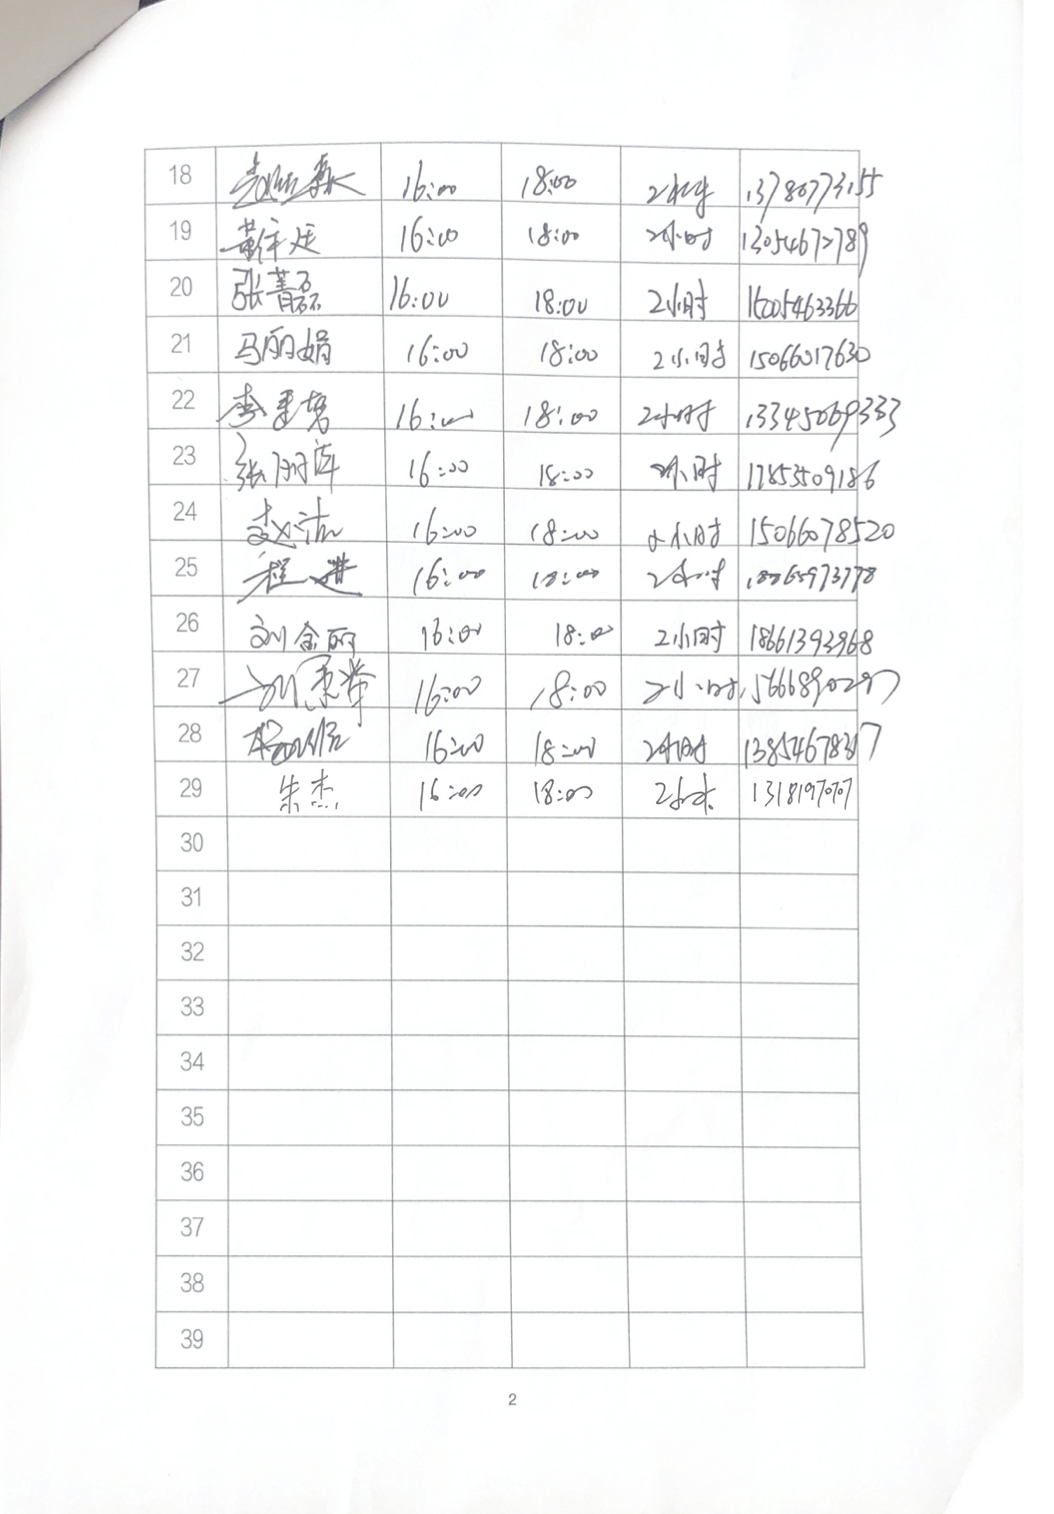 18 16:00 18:00 2小时 13780773155
19 黄 16:00 18:00 2小时 13054672789
20 张菁磊 16:00 18:00 2小时
21 马丽娟 16:00 18:00 2小时 15066017630
22 李 16:00 18:00 2小时 13345069333
23 张丽萍 16:00 18:00 2小时 17853509186
24 赵 16:00 18:00 2小时 15066078520
25 程进 16:00 18:00 2小时
26 刘金丽 16:00 18:00 2小时 18661393968
27 刘 16:00 18:00 2小时 15666890297
28 16:00 18:00 2小时 13854678317
29 朱杰 16:00 18:00 2小时
30
31
32
33
34
35
36
37
38
39
2